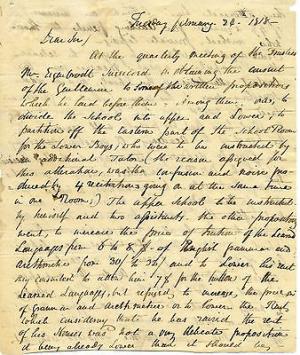 Tuesday February 24. 1818—
Dear Sir/
At the quarterly meeting of the Trustees
Mr. succeeded in obtaining the consent
of the Gentlemen to some of the written propositions
which he laid before them. among them, was, to
divide the Schools into upper and Lower; to
partition off the Eastern part of the School Room
for the Lower Boys, who were to be instructed by
an additional Tutor (the reason assigned for
this alteration, was the confusion and noise pro
duced by 4 recitations going on at the same time
in one Room;) The upper Schools to be instructed
by himself and two assistants, the other proposition
went, to increase the price of tuition of the Learned
Languages from 6 to 8 of English grammar and
arithmetic from 30 to 36, and to Lower his rent
they consented to allow him 7 for the tuition of the
Learned Languages, but refused, to increase the price
of grammar and arithmetic or to Lower the Rent,
which considering that he has raised the rent
of his was not a very delicate proposition
it being already Lower than it should be